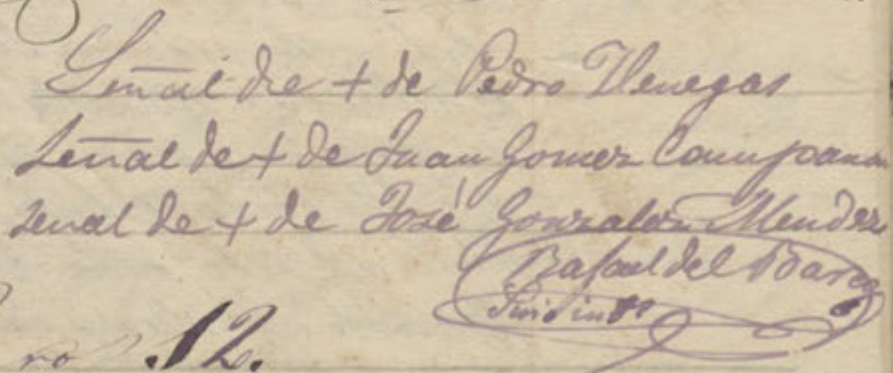 Señal de + de Pedro Venegas
Señal de + de Juan Gomez
señal de + de José Gonzalez Mendez
Rafael del
ro 12.